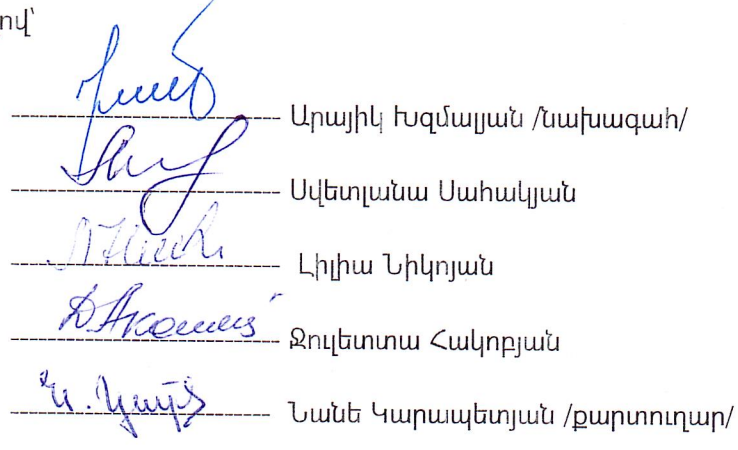 ով՝
Արայիկ Խզմալյան /նախագահ/
Սվետլանա Սահակյան
Լիլիա Նիկոյան
Ջուլետտա Հակոբյան
Նանե Կարապետյան /քարտուղար/